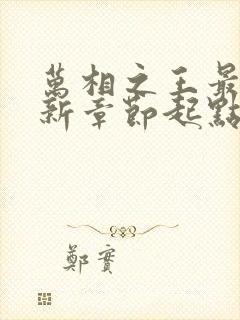 萬相之王最
新章節起點
鄭實